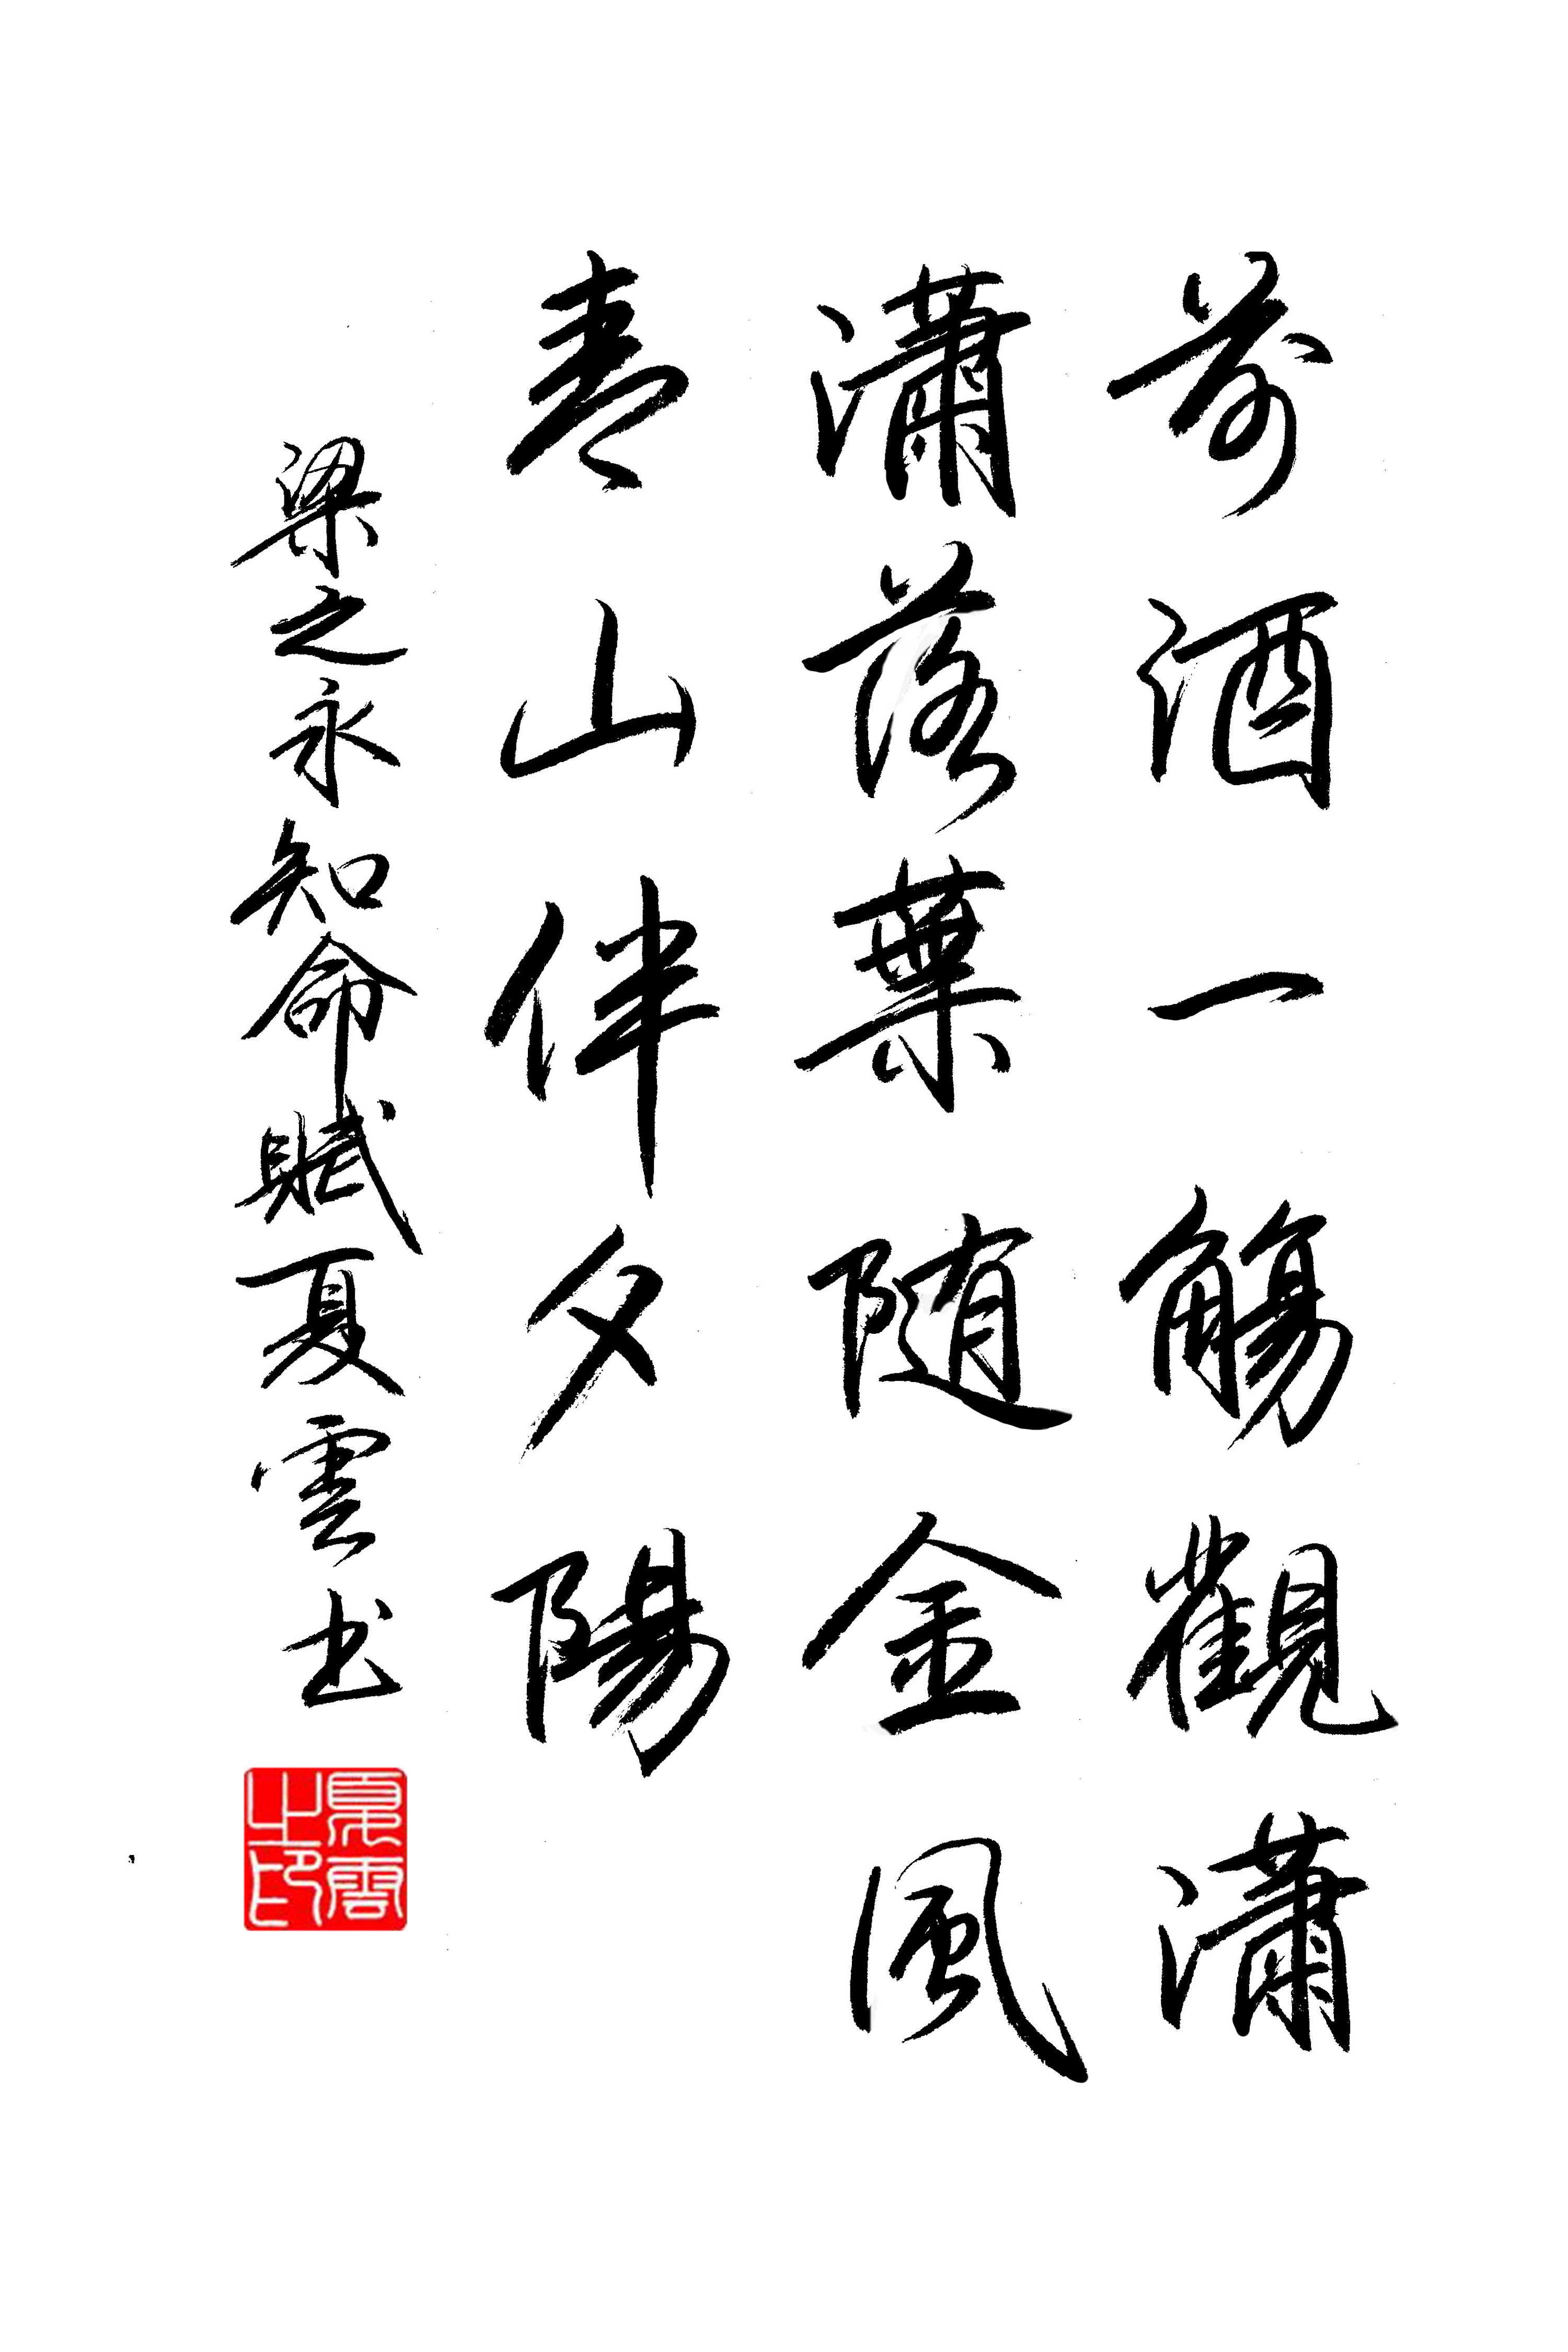 芳酒一觴觀瀟
瀟落葉随金風
青山伴夕陽
梁之永知命賦夏雲书
夏雲之印